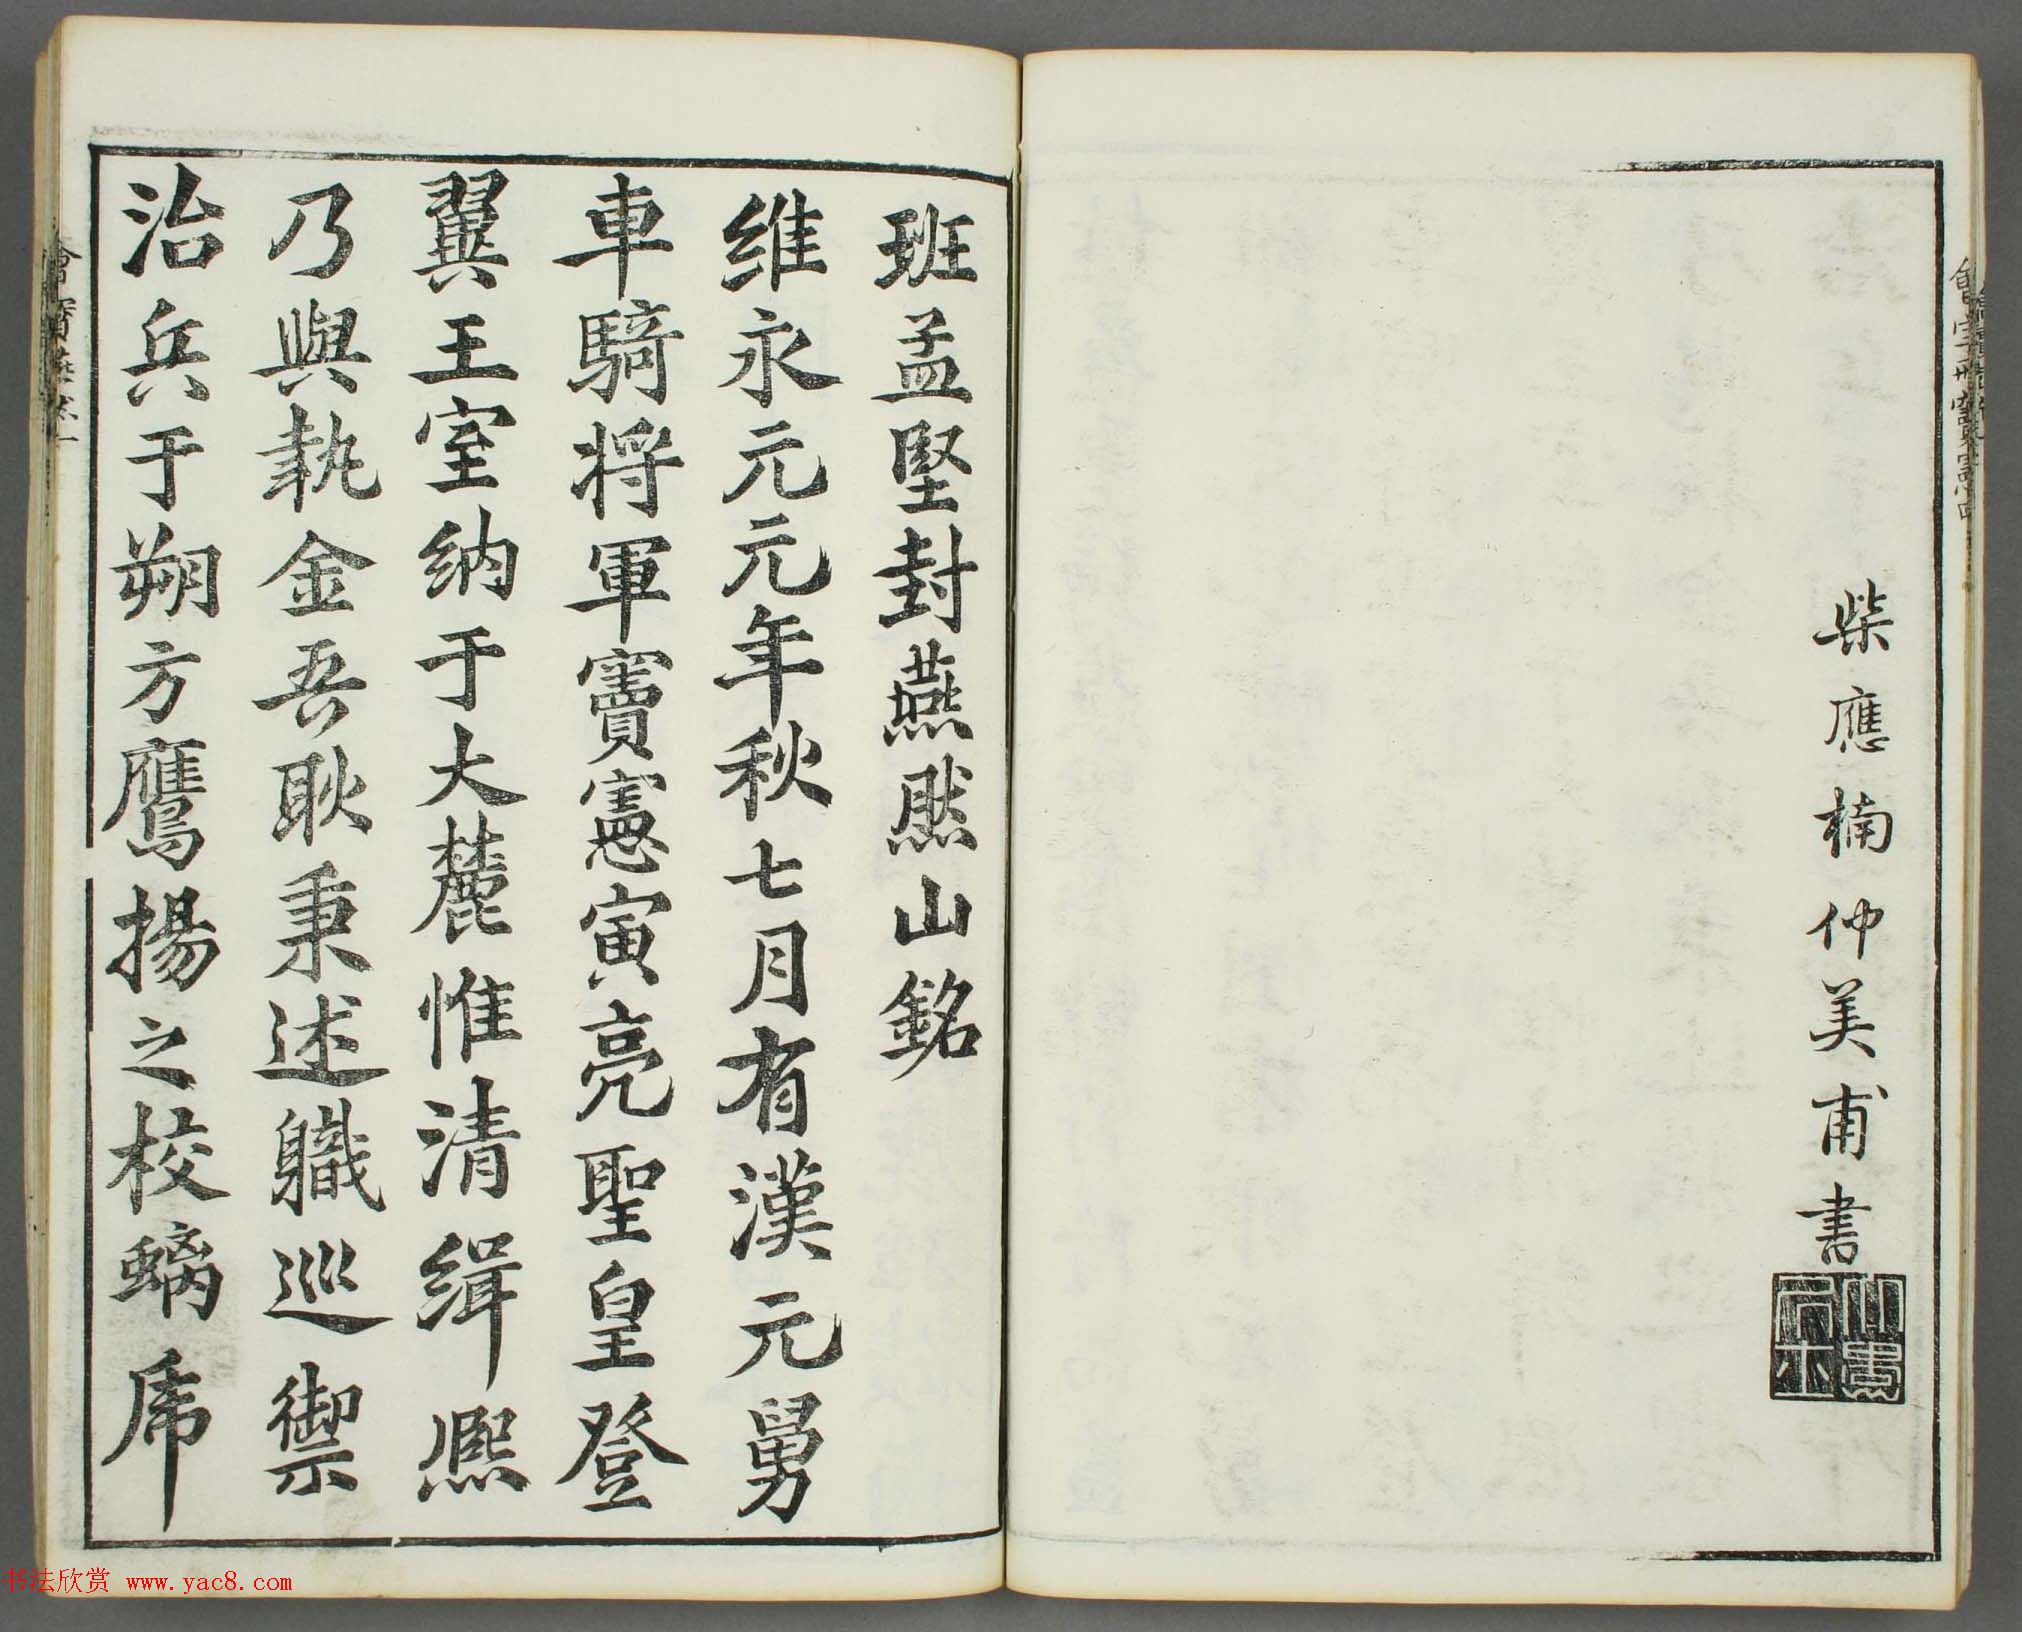 柴應楠仲美甫書
班孟堅封燕然山銘
維永元元年秋七月有漢元舅
車騎將軍竇憲寅亮聖皇登
翼王室納于大麓惟清緝熈
乃與執金吾耿秉述職巡禦
治兵于朔方鷹揚之校螭虎
书法欣赏 www.yac8.com